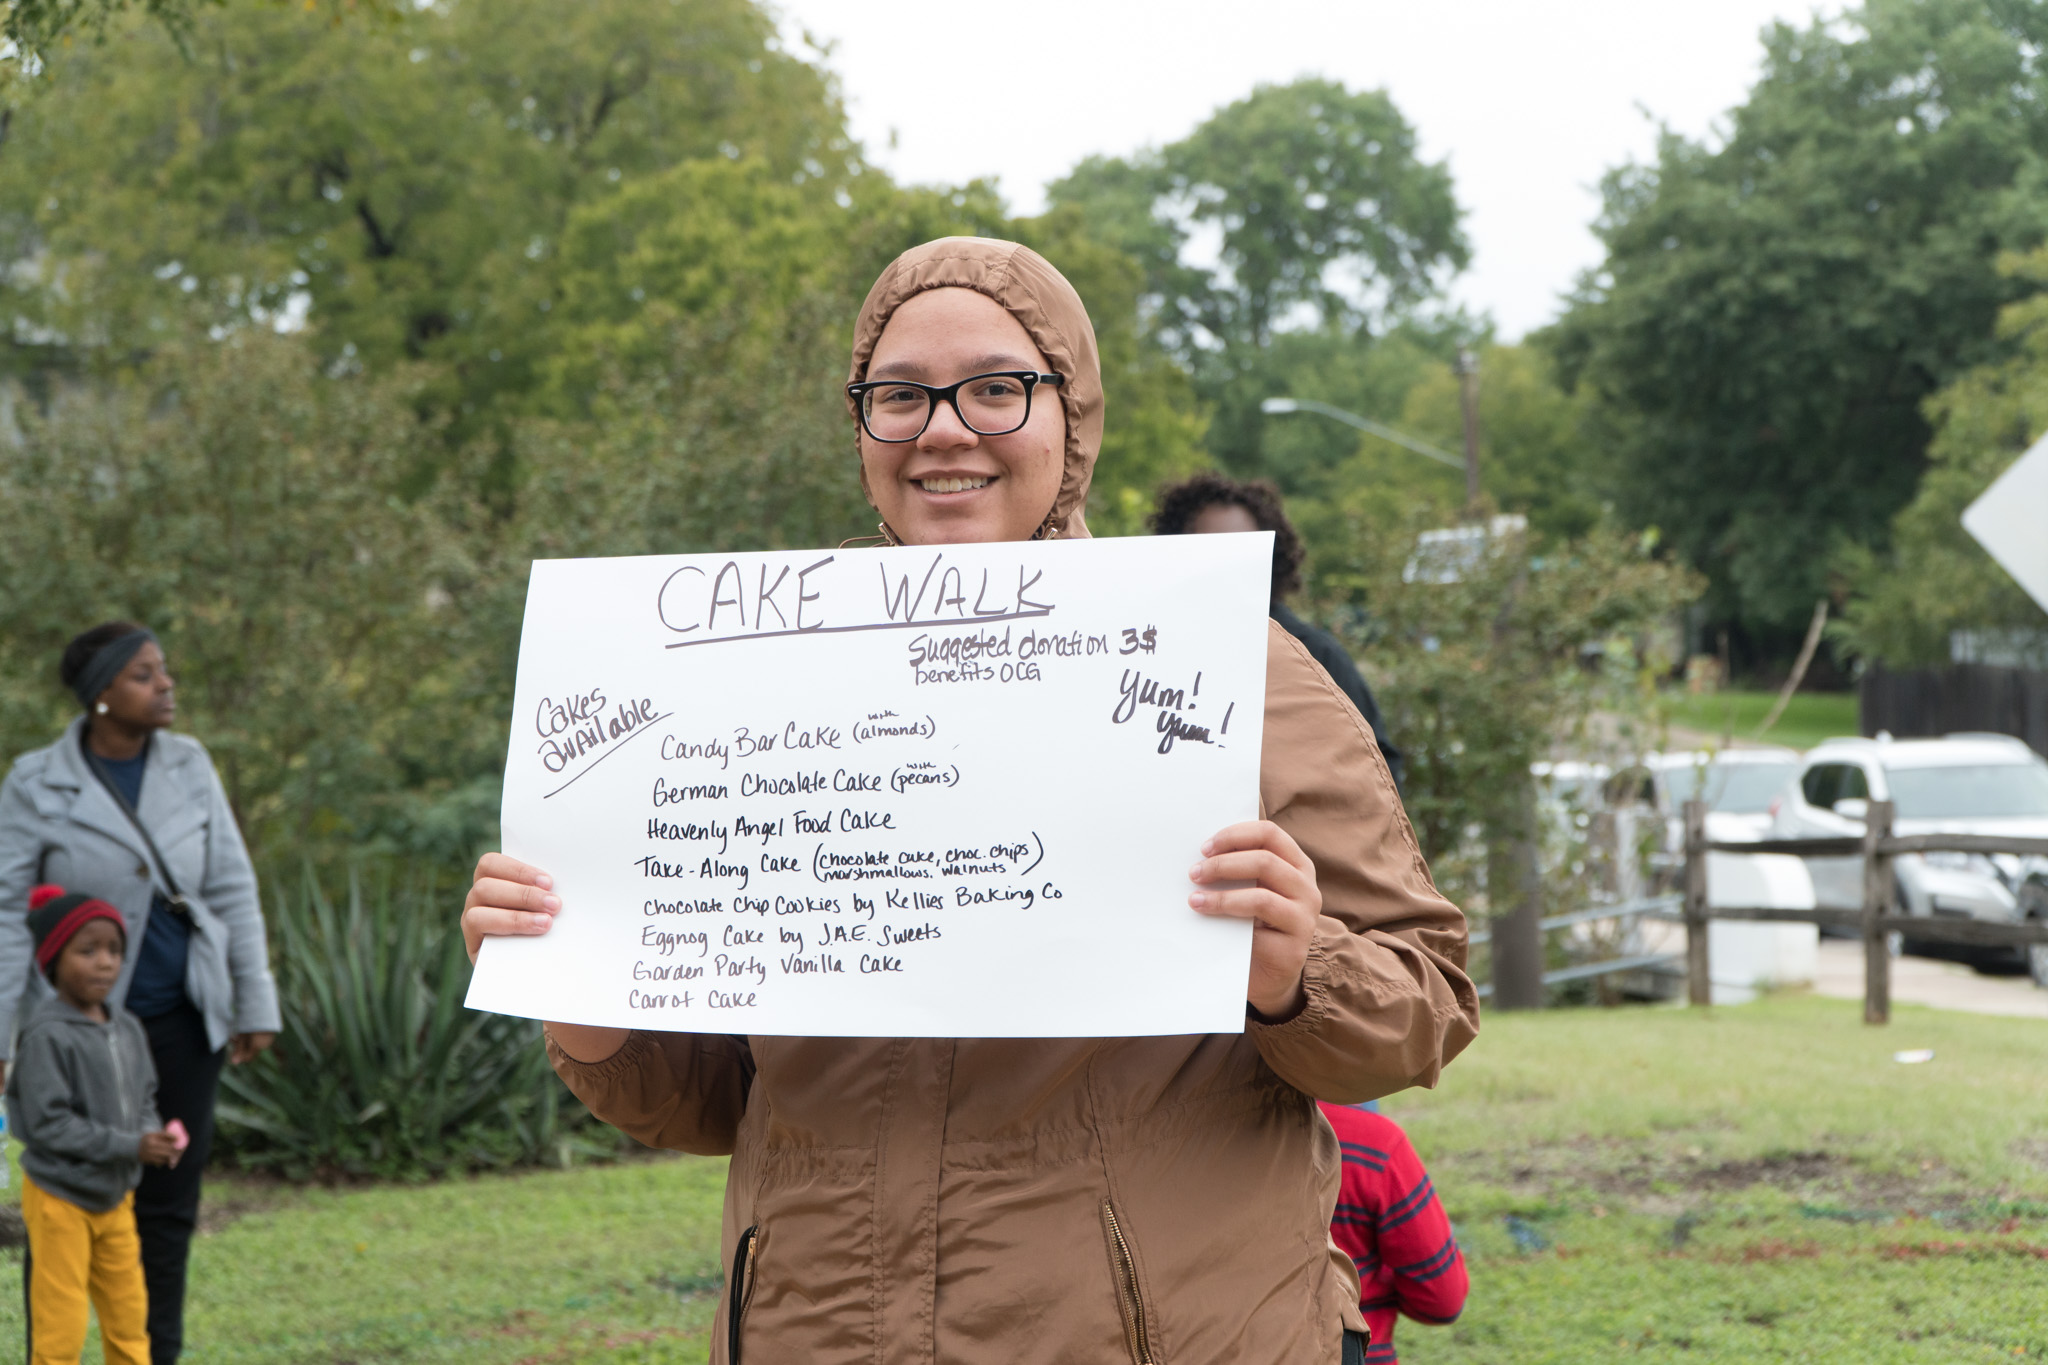 CAKE WALK
Suggested donation 3$
benefits OCG
Yum!
Yum!
Cakes
available
Candy Bar Cake (with almonds)
German Chocolate Cake (with pecans)
Heavenly Angel Food Cake
Take-Along Cake (chocolate cake, choc. chips
marshmallows. walnuts)
Chocolate Chip Cookies by Kellies Baking Co
Eggnog Cake by J.A.E. Sweets
Garden Party Vanilla Cake
Carrot Cake